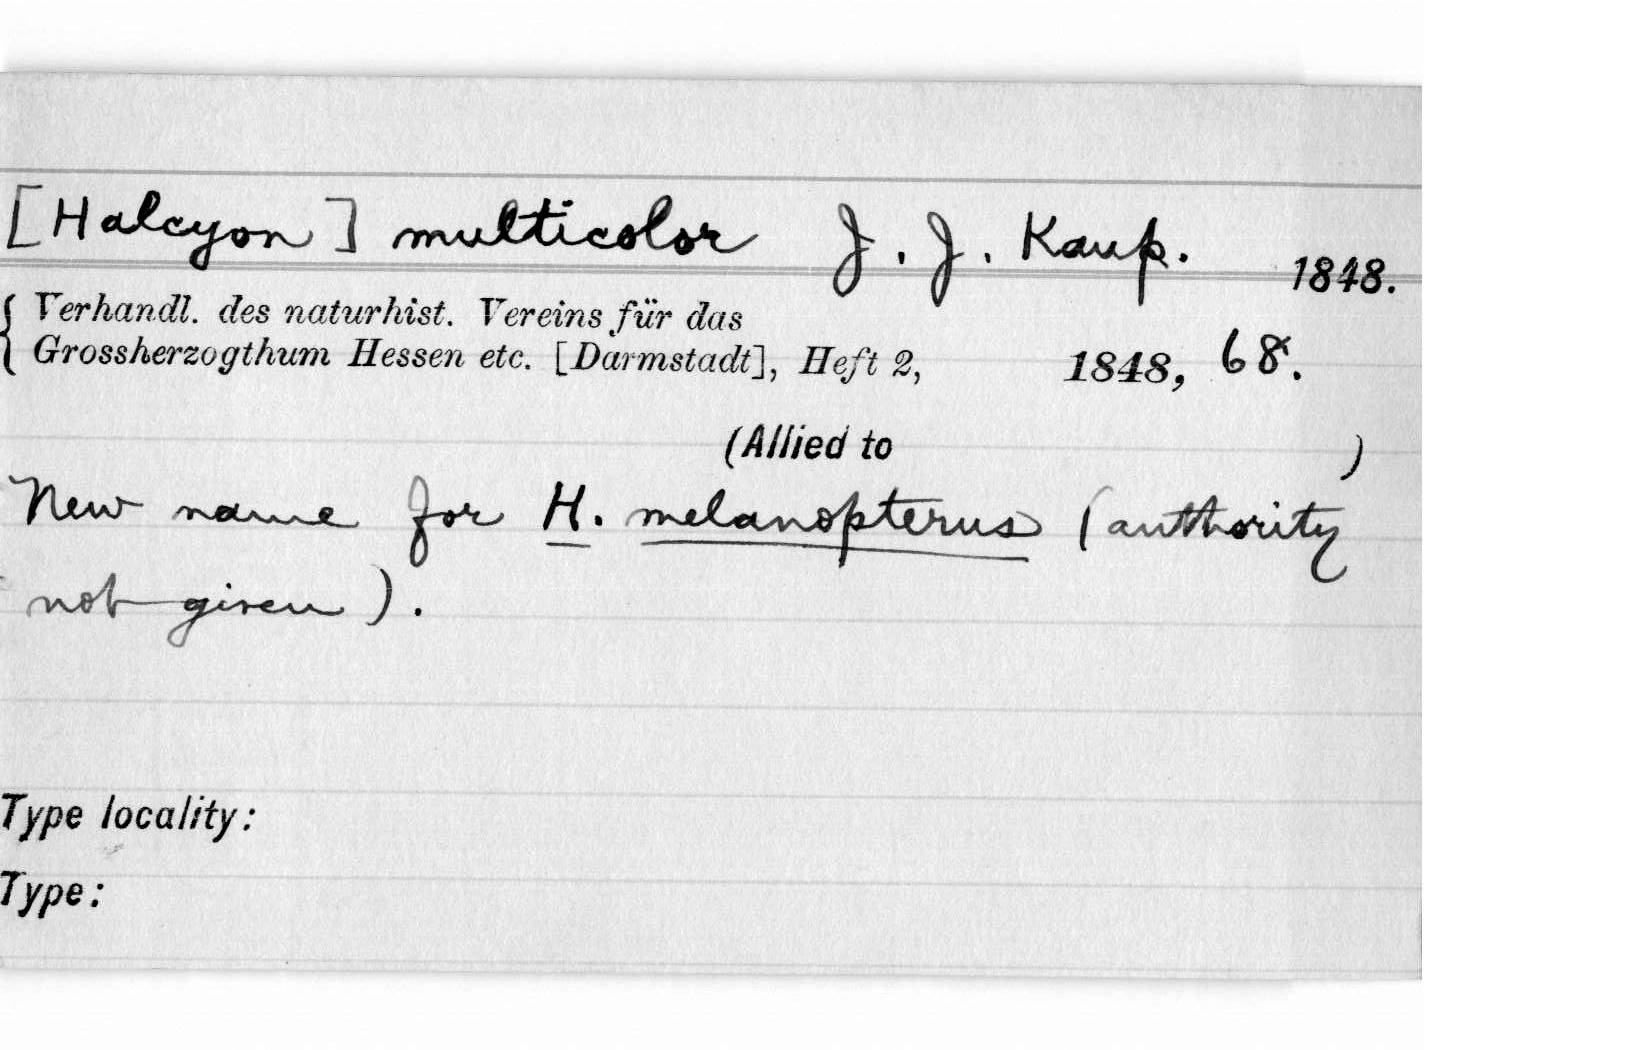 [Halcyon] multicolor J. J. Kaup. 1848.
Verhandl. des naturhist. Vereins für das
Grossherzogthum Hessen etc. [Darmstadt], Heft 2, 1848, 68.
(Allied to )
New name for H. melanopterus (authority
not given).
Type locality:
Type: